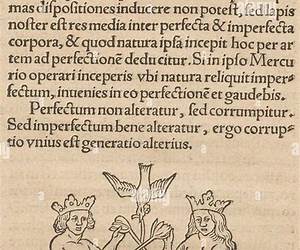 mas dispositiones inducere non potest, sed lapis
noster est res media inter perfecta & imperfecta
corpora, & quod natura ipsa incepit hoc per ar
tem ad perfectionẽ deducitur. Si in ipso Mercu
rio operari inceperis vbi natura reliquit imper-
fectum, inuenies in eo perfectionẽ et gaudebis.
Perfectum non alteratur, sed corrumpitur.
Sed imperfectum bene alteratur, ergo corrup
tio vnius est generatio alterius.